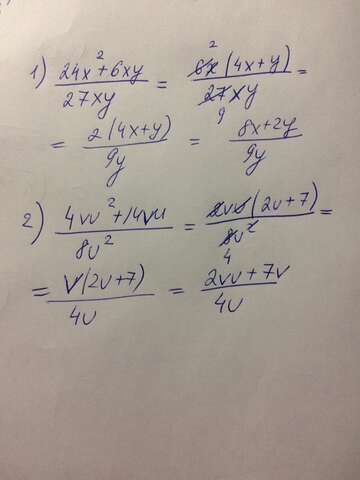 1) (24x²+6xy)/(27xy) = (6x(4x+y))/(27xy) =
= (2(4x+y))/(9y) = (8x+2y)/(9y)
2) (4vu²+14vu)/(8u²) = (2vu(2u+7))/(8u²) =
= (v(2u+7))/(4u) = (2vu+7v)/(4u)